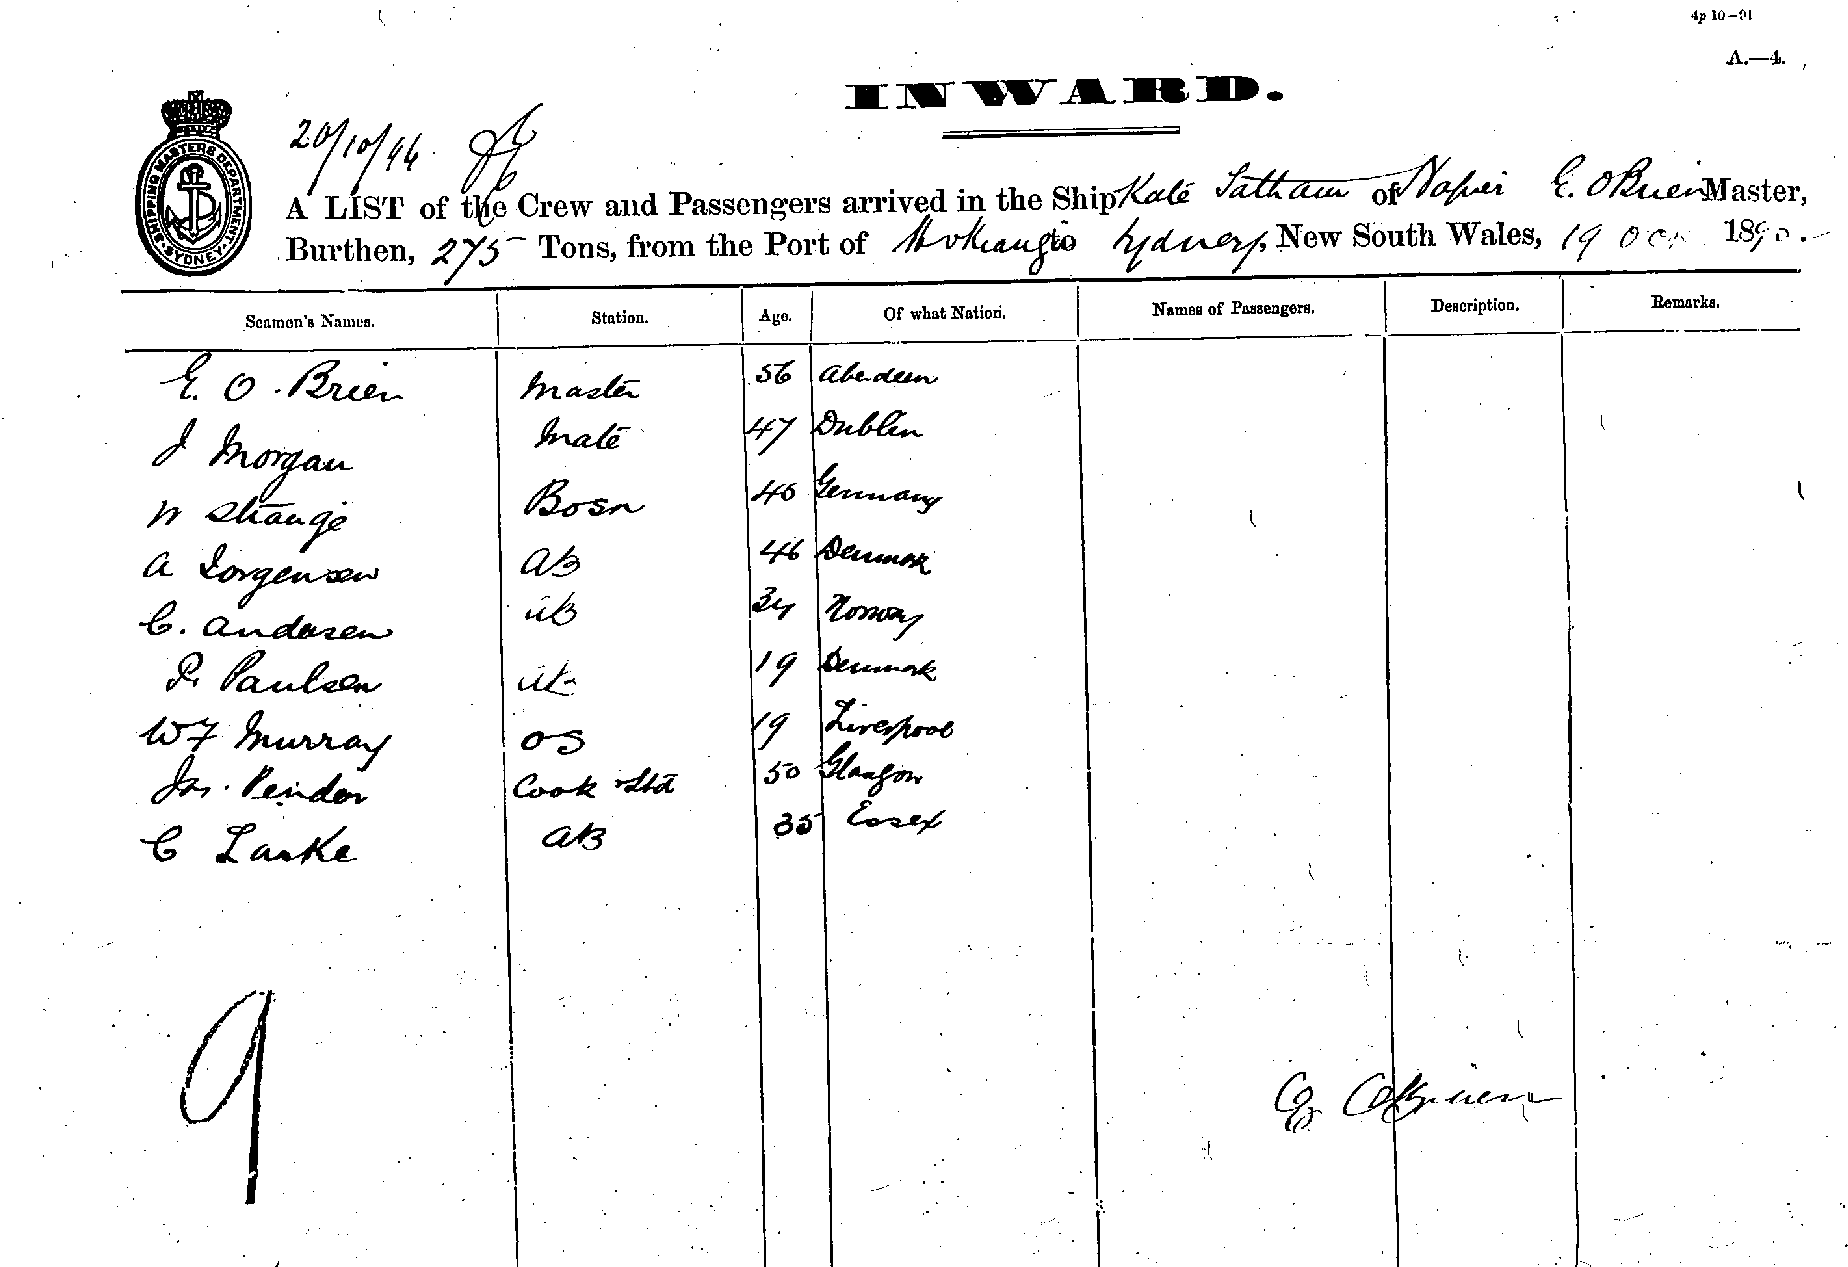 4p 10–91
A.—4.
INWARD.
SHIPPING MASTERS DEPARTMENT SYDNEY
20/10/96
A LIST of the Crew and Passengers arrived in the Ship Kate Tatham of Napier E. OBrien Master,
Burthen, 275 Tons, from the Port of Hokianga to Sydney, New South Wales, 19 Oct 189
Seamen's Names. Station. Age. Of what Nation. Names of Passengers. Description. Remarks.
E. O. Brien Master 56 Aberdeen
J Morgan Mate 47 Dublin
W Strange Bosn 40 Germany
A Jorgensen AB 46 Denmark
C. Andersen AB 34 Norway
P. Paulsen AB 19 Denmark
WF Murray OS 19 Liverpool
Jas. Pender Cook & Std 50 Glasgow
C Larke AB 35 Essex
9
E OBrien